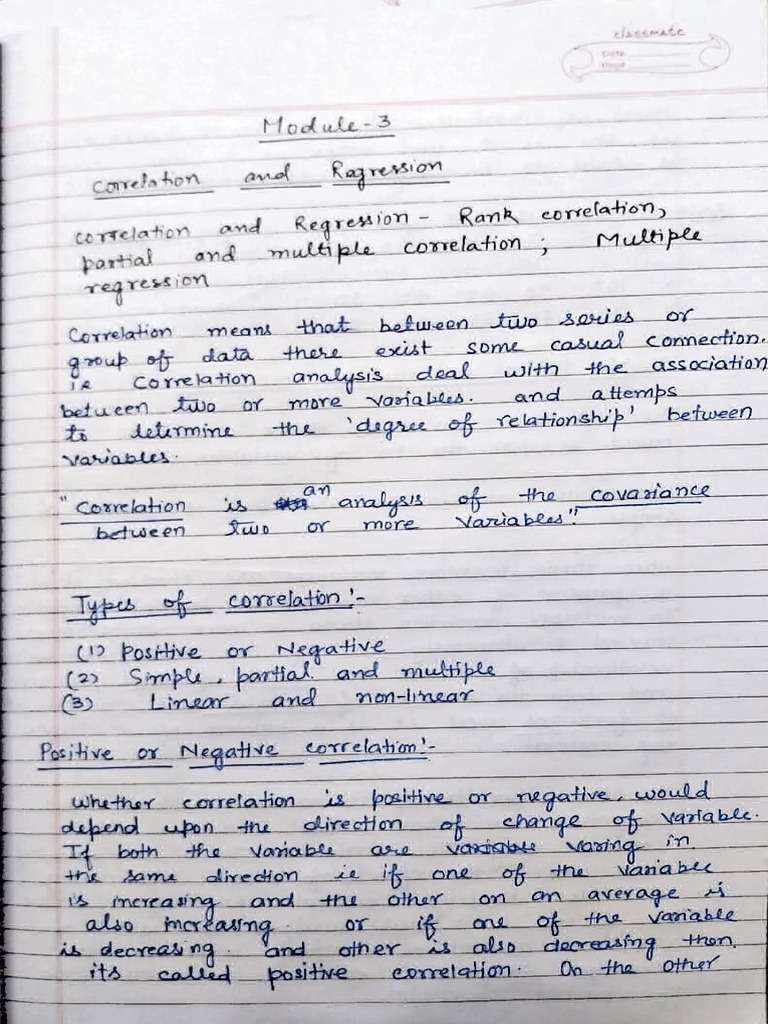 classmate
Date
Page
Module-3
Correlation and Ragression
Correlation and Regression - Rank correlation,
partial and multiple correlation ; Multiple
regression
Correlation means that between two series or
group of data there exist some casual connection.
ie Correlation analysis deal with the association
between two or more variables. and attemps
to determine the 'degree of relationship' between
variables.
"Correlation is an analysis of the covariance
between two or more variables".
Types of correlation:-
(1) Positive or Negative
(2) Simple, partial and multiple
(3) Linear and non-linear
Positive or Negative correlation:-
Whether correlation is positive or negative, would
depend upon the direction of change of variable.
If both the variable are varing in
the same direction ie if one of the variable
is increasing and the other on an average is
also increasing. or if one of the variable
is decreasing. and other is also decreasing then.
its called positive correlation. On the other